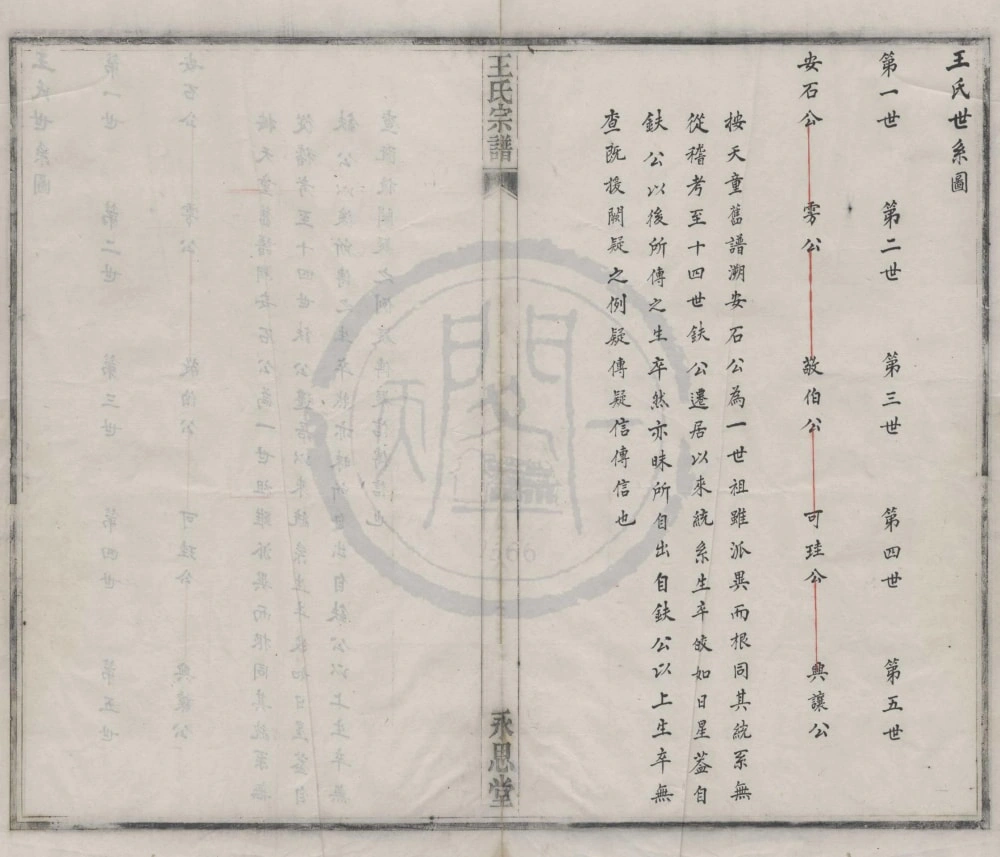 王氏世系圖
第一世 第二世 第三世 第四世 第五世
安石公 雱公 敬伯公 可珪公 興讓公
按天童舊譜溯安石公為一世祖雖派異而根同其統系無
從稽考至十四世鈇公遷居以來統系生卒皎如日星葢自
鈇公以後所傳之生卒然亦昧所自出自鈇公以上生卒無
查既援闕疑之例疑傳疑信傳信也
王氏宗譜
永思堂
1566